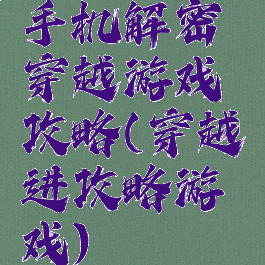 手机解密
穿越游戏
攻略(穿越
进攻略游
戏)